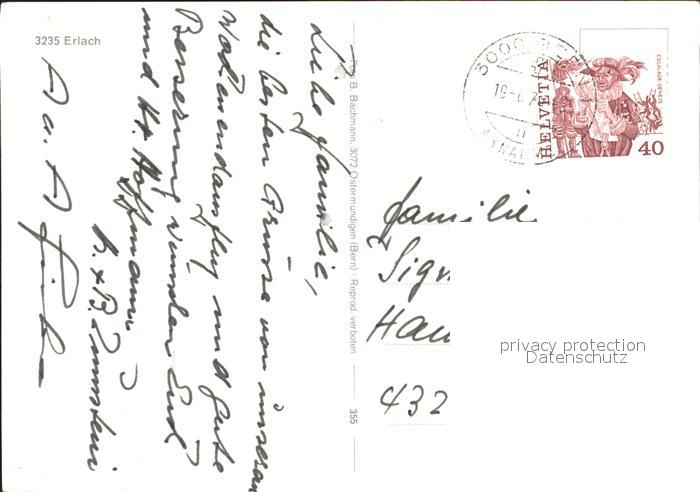 3235 Erlach
Liebe Familie,
die besten Grüsse von unserem
Wochenendausflug und gute
Besserung wünschen Euch
und Hr. Hoffmann
A. + B.
A. u. A.
Foto B. Bachmann, 3072 Ostermundigen (Bern) · Reprod. verboten
355
3000
19-
HELVETIA
ESCALADE GENEVE
40
Familie
Sig
Hau
432
privacy protection
Datenschutz